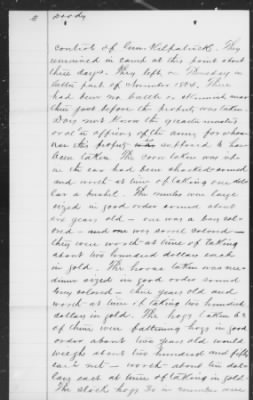 2 Doody
control of Genl Kilpatrick. They
remained in camp at this point about
three days. They left on Thursday in
latter part of November 1864. There
had been no battle or skirmish near
this point before the property was taken.
Does not know the quartermasters
or other officers of the army for whose
use this property was supposed to have
been taken. The corn taken was
in the ear had been shucked
and worth at time of taking one dol
lar a bushel. The mules were large
sized in good order sound about
six years old - one was a bay
and one was same colored -
they were worth at time of taking
about two hundred dollars each
in gold. The horse taken was me-
dium sized in good order sound
colored - years old and
worth at time of taking two hundred
dollars in gold. The hogs taken 63
of them were fattening hogs in good
order about two years old would
weigh about two hundred and fifty
each net - worth about ten dol
lars each at time of taking in gold.
The stock hogs 30 in number were